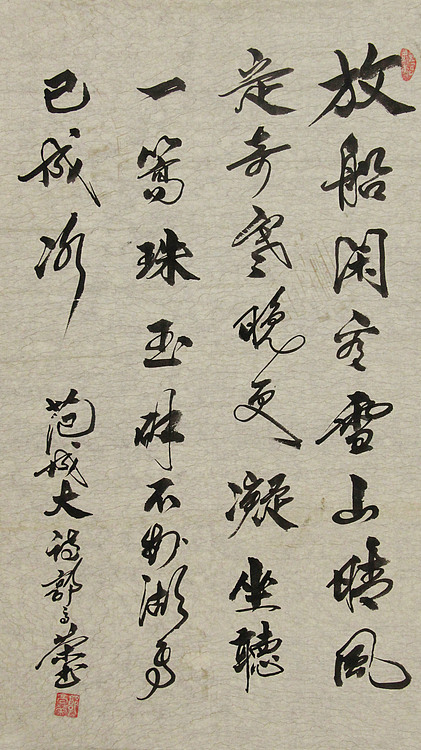 放船闲看雪山晴风
定奇寒晚更凝坐聽
一篙珠玉碎不知湖面
已成冰
范成大詩郭